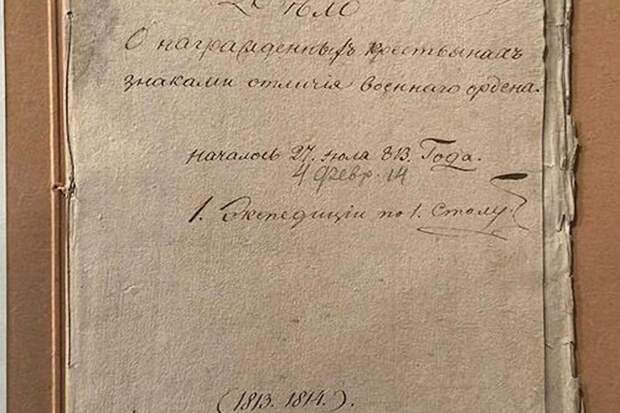 Дѣло
О награжденныхъ крестьянахъ
знаками отличія военнаго ордена.
началось 27. июля 813. Года.
4 февр. 14
1. Экспедиціи по 1. Столу
(1813. 1814.).